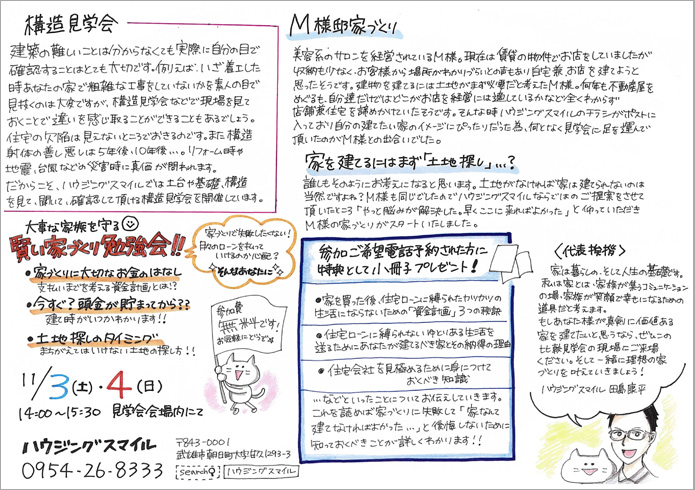 構造見学会
建築の難しいことは分からなくても実際に自分の目で
確認することはとても大切です。例えば、いざ着工した
時あなたの家で粗雑な工事をしていないかを素人の目で
見抜くのは大変ですが、構造見学会などで現場を見て
おくことで違いを感じ取ることができることもあるでしょう。
住宅の欠陥は見えないところでおきるのです。また構造
躯体の善し悪しは5年後、10年後…。リフォーム時や
地震、台風などの災害時に真価が問われます。
だからこそ、ハウジングスマイルでは土台や基礎、構造
を見て、聞いて、確認して頂ける構造見学会を開催しています。
M様邸家づくり
美容系のサロンを経営されているM様。現在は賃貸の物件でお店をしていましたが
収納も少なく、お客様から場所がわかりづらいとの声もあり自宅兼お店を建てようと
思ったそうです。建物を建てるには土地がまず必要だと考えたM様。何年も不動産屋を
めぐるも、自分達だけではどこがお店を経営には適しているかなど全くわからず
店舗兼住宅を諦めかけていたそうです。そんな時ハウジングスマイルのチラシがポストに
入っており自分の建てたい家のイメージにぴったりだった為、何となく見学会に足を運んで
頂いたのがM様との出会いでした。
家を建てるにはまず「土地探し」…?
誰しもそのようにお考えになると思います。土地がなければ家は建てられないのは
当然ですよね?M様も同じでしたのでハウジングスマイルならではのご提案をさせて
頂いたところ「やっと悩みが解決した。早くここに来ればよかった」と仰っていただき
M様の家づくりがスタートいたしました。
大事な家族を守る
賢い家づくり勉強会!!
家づくりで失敗したくない!
月々のローンを払って
いけるのか心配?
そんなあなたに
・家づくりに大切なお金のはなし
支払いまでを考える資金計画とは!?
・今すぐ?頭金が貯まってから??
建て時がいつかわかります!!
・土地探しのタイミング
まちがえてはいけない土地の探し方!!
参加費
無料です!
お気軽にどうぞ
11/3(土)・4(日)
14:00〜15:30 見学会会場内にて
ハウジングスマイル
0954-26-8333
〒843-0001
武雄市朝日町大字甘久1293-3
search
ハウジングスマイル
参加ご希望電話予約された方に
特典として小冊子プレゼント!
・家を買った後、住宅ローンに縛られたカツカツの
生活にならないための「資金計画」3つの秘訣
・住宅ローンに縛られないゆとりある生活を
送るためにあなたが建てるべき家とその納得の理由
・住宅会社を見極めるために身につけて
おくべき知識
…などといったことについてお伝えしていきます。
これを読めば家づくりに失敗して「家なんて
建てなければよかった…」と後悔しないために
知っておくべきことが詳しくわかります!!
〈代表挨拶〉
家は暮らしの、そして人生の基盤です。
私は家とは、家族が集うコミュニケーション
の場、家族が笑顔で幸せになるための
道具だと考えます。
もしあなた様が真剣に価値ある
家を建てたいと思うなら、ぜひこの
比較見学会の現場にご来場
ください。そして一緒に理想の家
づくりを叶えていきましょう!
ハウジングスマイル 田島康平